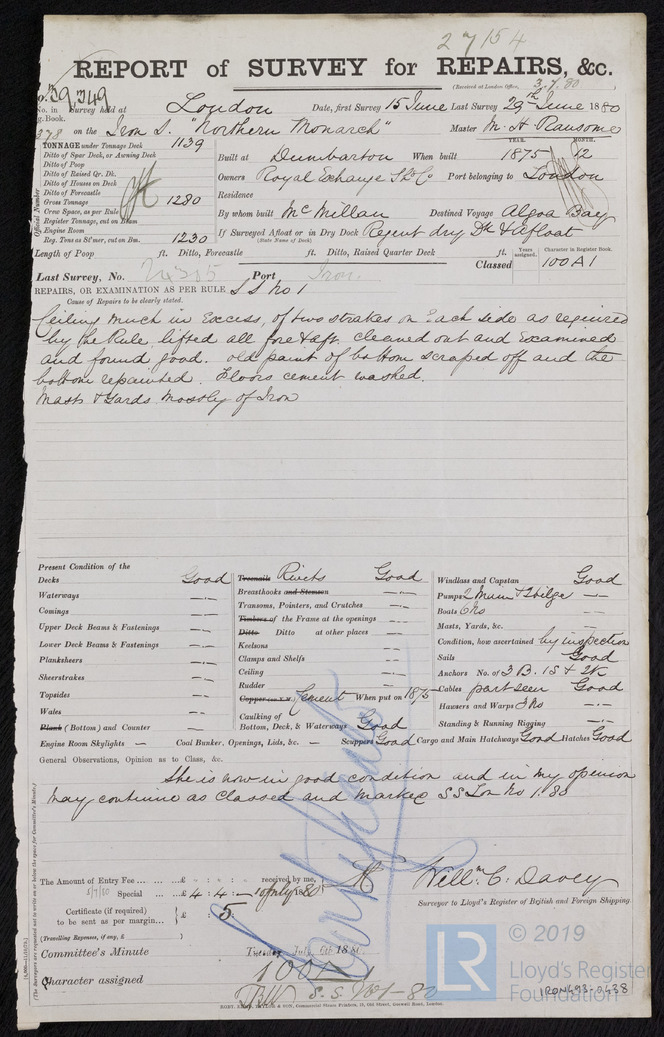 27154
REPORT of SURVEY for REPAIRS, &c.
(Received at London Office, 3.7.80 )
No. 39,349
No. in Reg. Book. Survey held at London Date, first Survey 15 June Last Survey 29th June 1880
378 on the Iron S. "Northern Monarch" Master M. H. Ransome
TONNAGE under Tonnage Deck 1139
Ditto of Spar Deck, or Awning Deck
Ditto of Poop
Ditto of Raised Qr. Dk.
Ditto of Houses on Deck
Ditto of Forecastle
Gross Tonnage 1280
Crew Space, as per Rule
Register Tonnage, cut on Beam
Engine Room
Reg. Tons as St'mer, cut on Bm. 1230
Official Number
YEAR. MONTH.
Built at Dumbarton When built 1875 12
Owners Royal Exchange Sh. Co Port belonging to London
Residence
By whom built McMillan Destined Voyage Algoa Bay
If Surveyed Afloat or in Dry Dock Regent dry Dk & afloat
(State Name of Dock)
Length of Poop ft. Ditto, Forecastle ft. Ditto, Raised Quarter Deck ft.
Years assigned. Character in Register Book.
Classed 100A1
Last Survey, No. 24305 Port Iron.
REPAIRS, OR EXAMINATION AS PER RULE S S No 1
Cause of Repairs to be clearly stated.
Ceiling much in excess, of two strakes on Each side as required
by the Rule, lifted all fore & aft. cleaned out and Examined
and found good. old paint of bottom scraped off and the
bottom repainted. Floors cement washed.
Masts & Yards mostly of Iron
Present Condition of the
Decks Good
Waterways —
Comings —
Upper Deck Beams & Fastenings —
Lower Deck Beams & Fastenings —
Planksheers —
Sheerstrakes —
Topsides —
Wales —
Plank (Bottom) and Counter —
Engine Room Skylights —
Treenails Rivets Good
Breasthooks and Stemson —
Transoms, Pointers, and Crutches —
Timbers of the Frame at the openings —
Ditto Ditto at other places —
Keelsons —
Clamps and Shelfs —
Ceiling —
Rudder —
Copper (or Y.M.) Cement When put on 1875
Caulking of Bottom, Deck, & Waterways Good
Coal Bunker, Openings, Lids, &c. — Scuppers Good Cargo and Main Hatchways Good Hatches Good
Windlass and Capstan Good
Pumps 2 Main & bilge —
Boats 6 No —
Masts, Yards, &c. —
Condition, how ascertained by inspection
Sails Good
Anchors No. of 3 B. 1S & 2K
Cables part seen Good
Hawsers and Warps 3 No —
Standing & Running Rigging —
General Observations, Opinion as to Class, &c.
She is now in good condition and in my opinion
may continue as Classed and marked SS Lon No 1. 80
The Amount of Entry Fee ... £ : : received by me,
5/7/80 Special ... £ 4 : 4 : — 10 July 1880
Certificate (if required) to be sent as per margin... £ : 5
(Travelling Expenses, if any, £ )
Will.m C. Davey
Surveyor to Lloyd's Register of British and Foreign Shipping.
Committee's Minute Tuesday July 6th 1880
Character assigned 100A1
S.S. No 1-80
(The Surveyors are requested not to write on or below the space for Committee's Minute.)
© 2019
LR
Lloyd's Register
Foundation
IRON493-0438